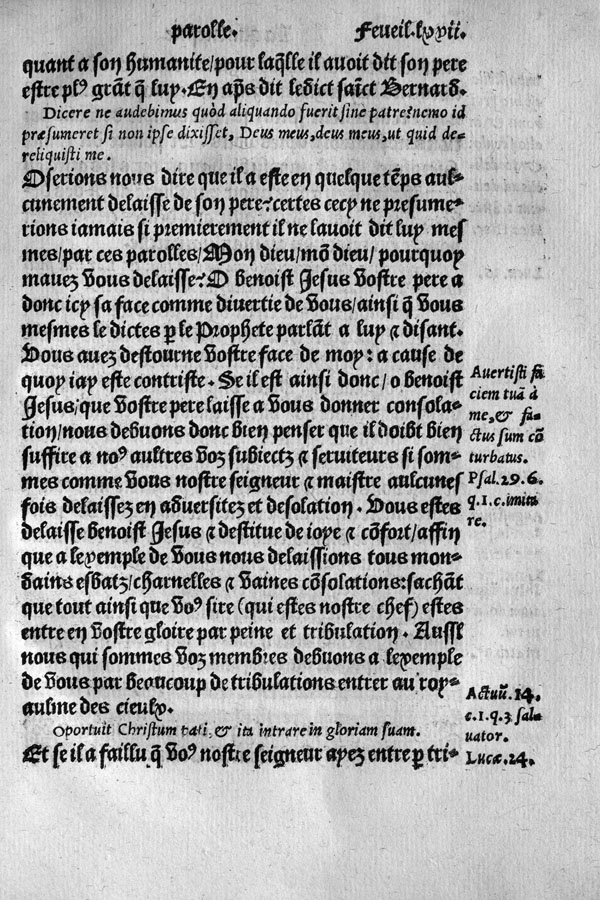 parolle. Feueil.lxxii.
quant a son humanite/pour laq̄lle il auoit dit son pere
estre plꝰ grāt q̄ luy. En aps̄ dit ledict sainct Bernard.
Dicere ne audebimus quòd aliquando fuerit sine patre? nemo id
præsumeret si non ipse dixisset, Deus meus, deus meus, ut quid de-
reliquisti me.
Oserions nous dire que il a este en quelque tēps aul-
cunement delaisse de son pere? certes cecy ne presume-
rions iamais si premierement il ne lauoit dit luy mes
mes/par ces parolles/Mon dieu/mō dieu/ pourquoy
mauez vous delaisse? O benoist Jesus vostre pere a
donc icy sa face comme diuertie de vous/ainsi q̄ vous
mesmes le dictes ꝑ le Prophete parlāt a luy ⁊ disant.
Vous auez destourne vostre face de moy: a cause de
quoy iay este contriste. Se il est ainsi donc/o benoist
Jesus/que vostre pere laisse a vous donner consola-
tion/nous debuons donc bien penser que il doibt bien
suffire a noꝰ aultres voz subiectz ⁊ seruiteurs si som-
mes comme vous nostre seigneur ⁊ maistre aulcunes
fois delaissez en aduersitez et desolation. Vous estes
delaisse benoist Jesus ⁊ destitue de ioye ⁊ cōfort/affin
que a lexemple de vous nous delaissions tous mon-
dains esbatz/charnelles ⁊ vaines cōsolations: sachāt
que tout ainsi que voꝰ sire (qui estes nostre chef) estes
entre en vostre gloire par peine et tribulation. Aussi
nous qui sommes voz membres debuons a lexemple
de vous par beaucoup de tribulations entrer au roy-
aulme des cieulx.
Oportuit Christum pati, & ita intrare in gloriam suam.
Et se il a faillu q̄ voꝰ nostre seigneur ayez entre ꝑ tri-
Auertisti fa
ciem tuā à
me, & fa-
ctus sum cō
turbatus.
Psal.29.6.
q.1.c.imita
re.
Actuū.14.
c.1.q.3 sal-
uator.
Lucæ.24.